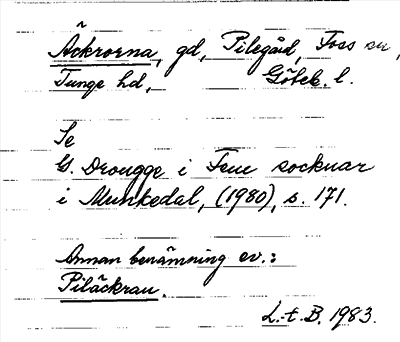 Äckrorna, gd, Pilegård, Foss sn,
Tunge hd, Göteb. l.
Se
G. Drougge i Fem socknar
i Munkedal, (1980), s. 171.
Annan benämning ev.:
Piläckran.
L.-t. B. 1983.